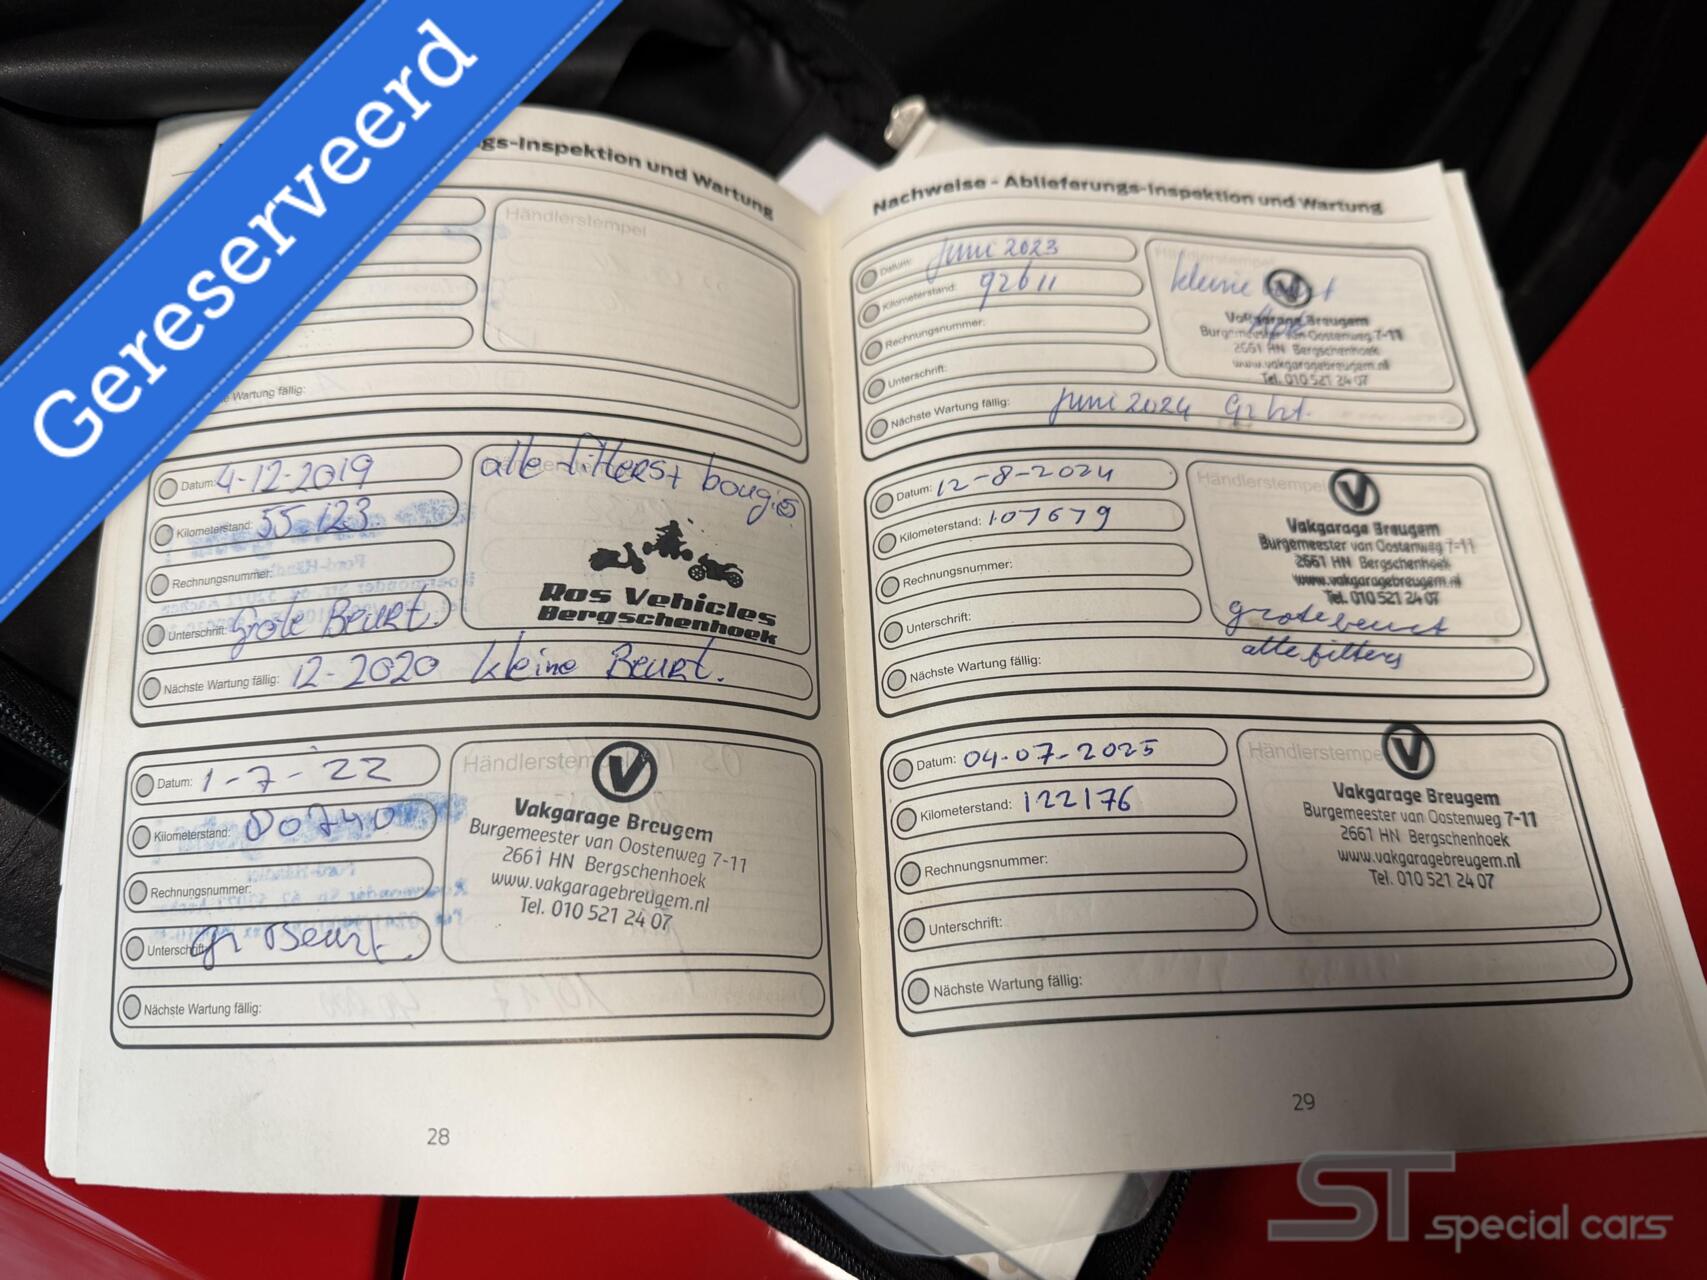 Gereserveerd
gs-Inspektion und Wartung
Händlerstempel
Wartung fällig:
Datum: 4-12-2019
Kilometerstand: 55 123
Rechnungsnummer:
Unterschrift: Grote Beurt.
Nächste Wartung fällig: 12-2020 kleine Beurt.
alle filters+ bougies
Ros Vehicles
Bergschenhoek
Datum: 1-7-'22
Kilometerstand: 80740
Rechnungsnummer:
Unterschrift: gr Beurt
Nächste Wartung fällig:
Händlerstempel
Vakgarage Breugem
Burgemeester van Oostenweg 7-11
2661 HN Bergschenhoek
www.vakgaragebreugem.nl
Tel. 010 521 24 07
28
Nachweise - Ablieferungs-Inspektion und Wartung
Datum: Juni 2023
Kilometerstand: 92611
Rechnungsnummer:
Unterschrift:
Nächste Wartung fällig: Juni 2024 gr bt.
Händlerstempel
kleine
Vakgarage Breugem
Burgemeester van Oostenweg 7-11
2661 HN Bergschenhoek
www.vakgaragebreugem.nl
Tel. 010 521 24 07
Datum: 12-8-2024
Kilometerstand: 107679
Rechnungsnummer:
Unterschrift:
Nächste Wartung fällig:
Händlerstempel
Vakgarage Breugem
Burgemeester van Oostenweg 7-11
2661 HN Bergschenhoek
www.vakgaragebreugem.nl
Tel. 010 521 24 07
grote beurt
alle filters
Datum: 04-07-2025
Kilometerstand: 122176
Rechnungsnummer:
Unterschrift:
Nächste Wartung fällig:
Händlerstempel
Vakgarage Breugem
Burgemeester van Oostenweg 7-11
2661 HN Bergschenhoek
www.vakgaragebreugem.nl
Tel. 010 521 24 07
29
ST special cars